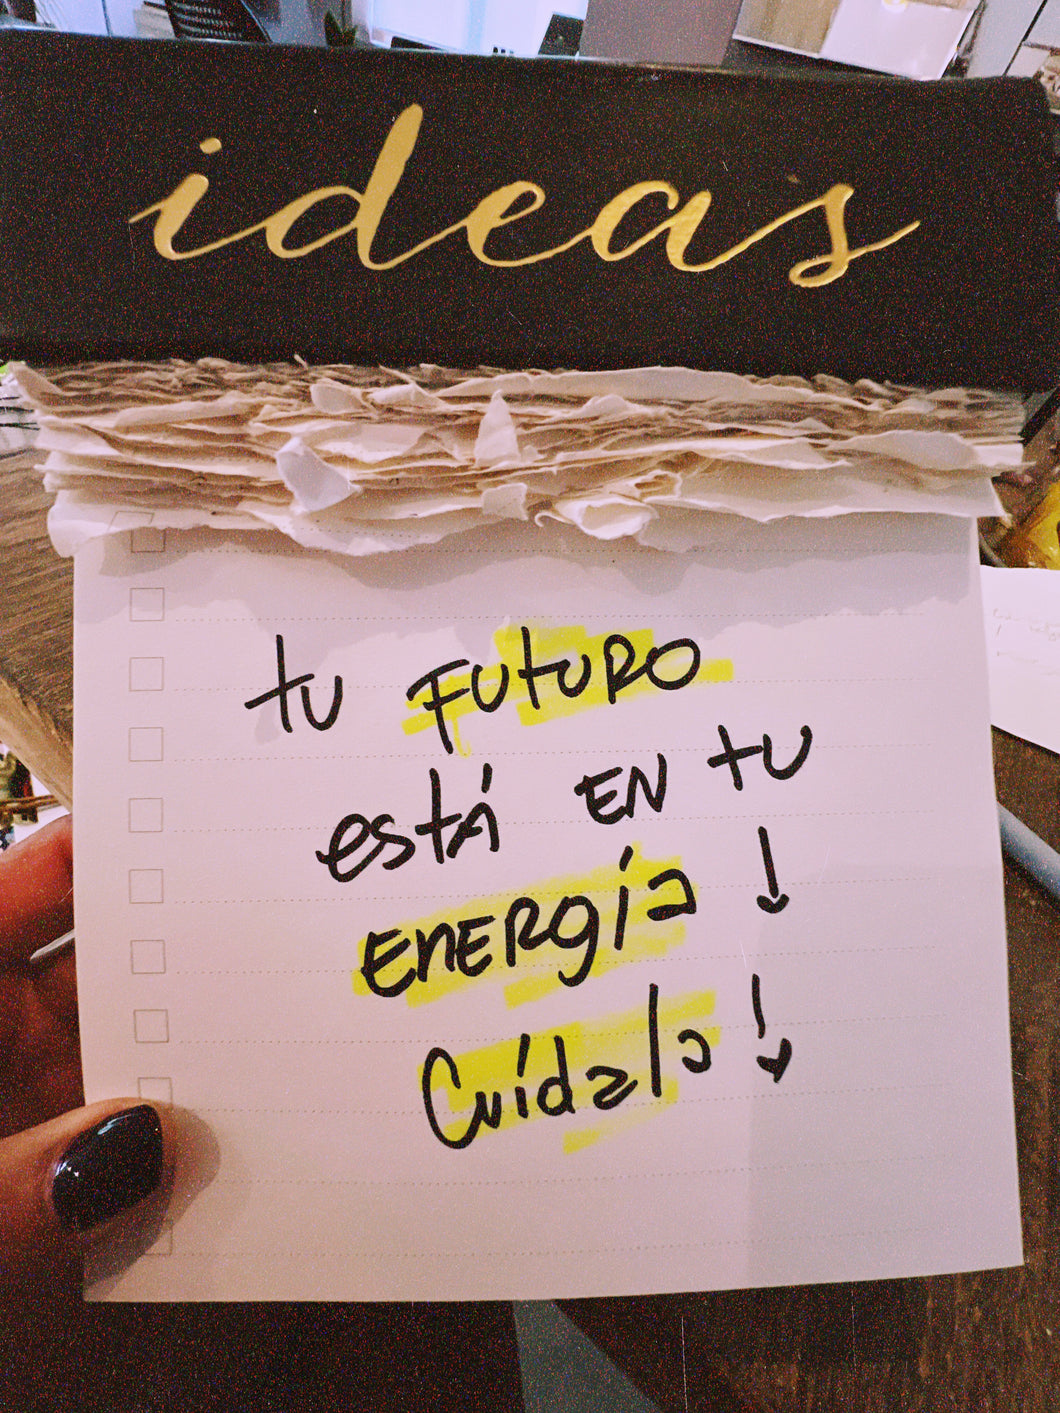 ideas
tu FUtURO
está EN tu
ENERGía !
Cuídala !